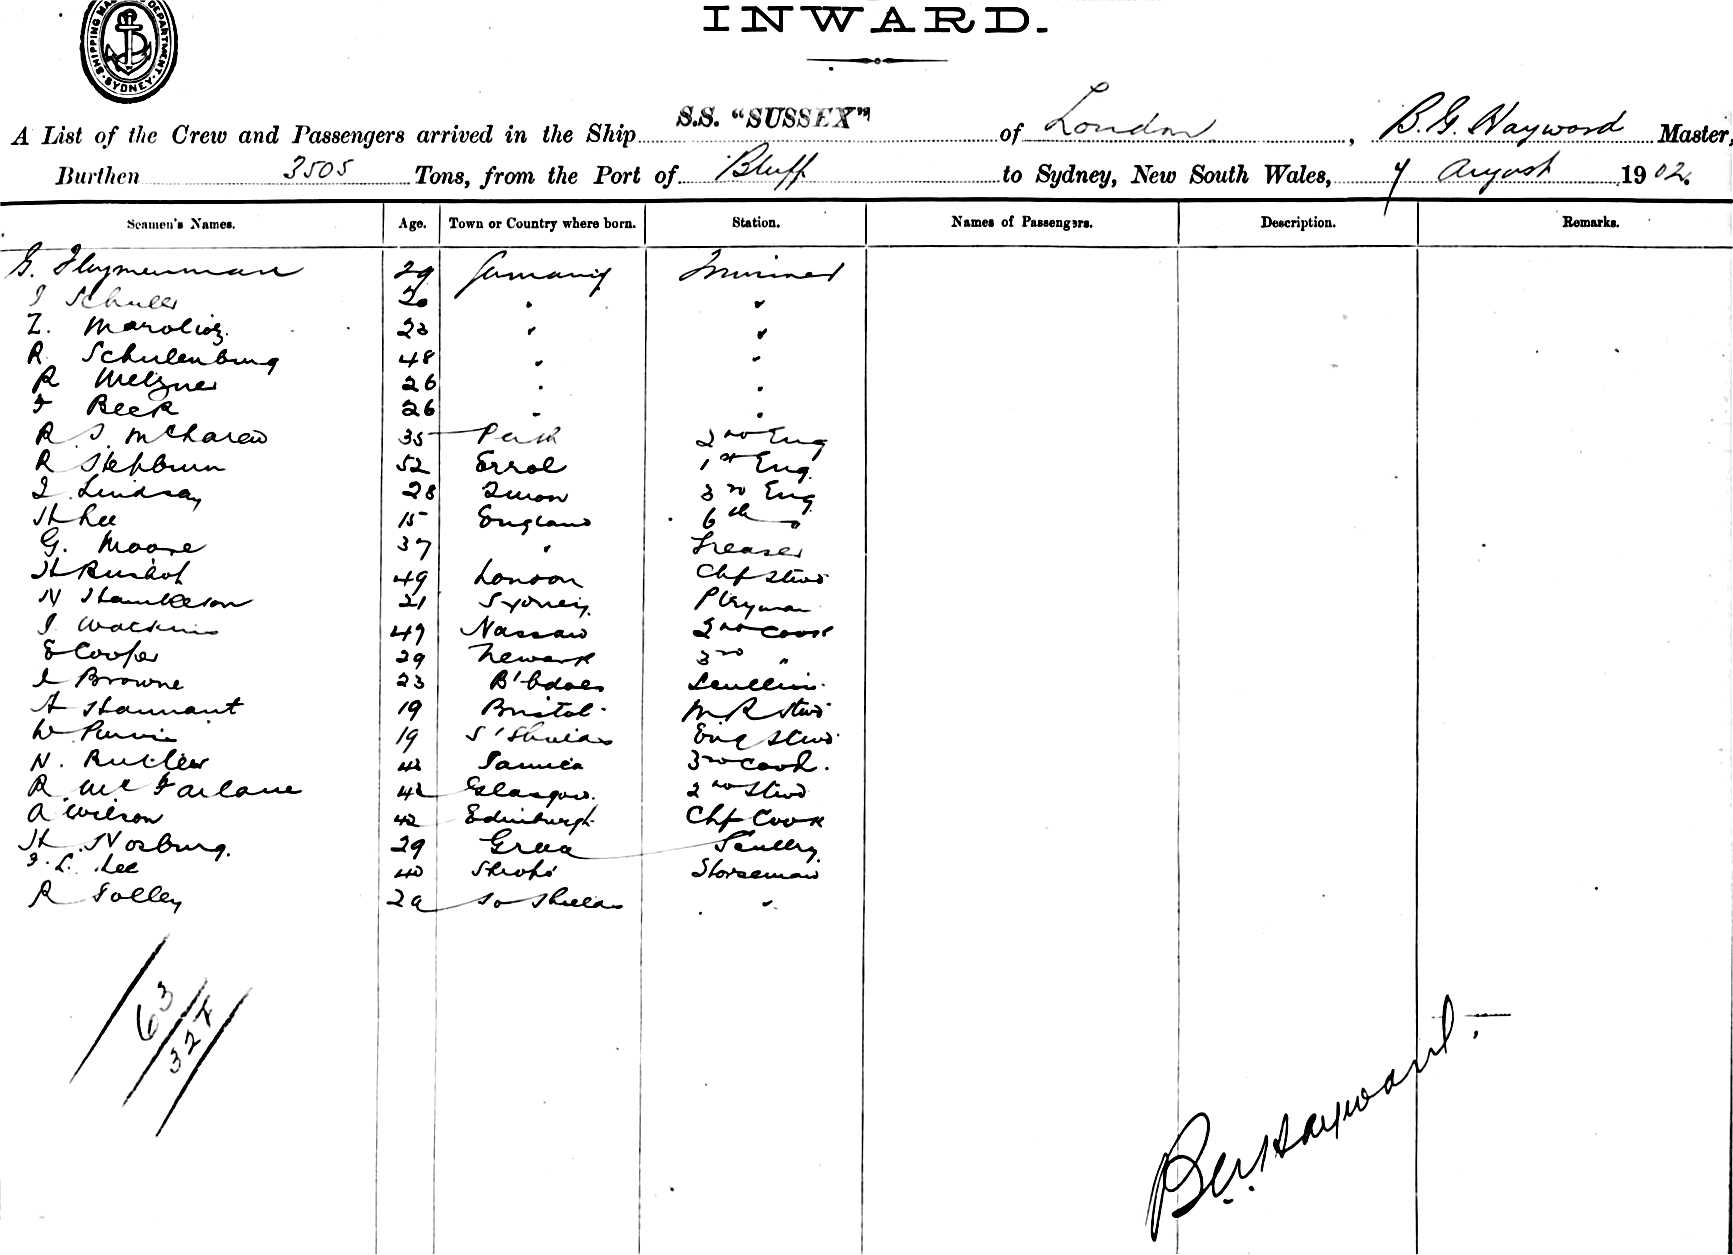 SHIPPING MASTER'S DEPARTMENT SYDNEY
INWARD.
A List of the Crew and Passengers arrived in the Ship S.S. "SUSSEX" of London, B.G. Hayward Master,
Burthen 3505 Tons, from the Port of Bluff to Sydney, New South Wales, 7 August 1902.
Seamen's Names. Age. Town or Country where born. Station. Names of Passengers. Description. Remarks.
G. 29 Germany Trimmer
Schuler 20 " "
Z. 23 " "
R Schulenburg 48 " "
R Metzner 26 " "
F Beck 26 " "
R. J. McLaren 35 Perth 2nd Eng
R Hepburn 52 Errol 1st Eng.
J Lindsay 28 3rd Eng
H Lee 15 England 6th "
G. Moore 37 " Greaser
H 49 London Chf Stwd
21 Sydney Ptryman
J Watkins 49 Nassau 2nd Cook
E Cooper 29 Newark 3rd "
Browne 23 B'bdoes Scullion
A Hannant 19 Bristol M R Stwd
W Purvis 19 S' Shields Eng Stwd
N. Butler 42 Jamica 3rd Cook.
R McFarlane 42 Glasgow. 2nd Stwd
A Wilson 42 Edinburgh Chf Cook
H Norburg. 29 Scullry
J. L. Lee 40 Horseman
R Solley So Shields "
63
327
B.G. Hayward.